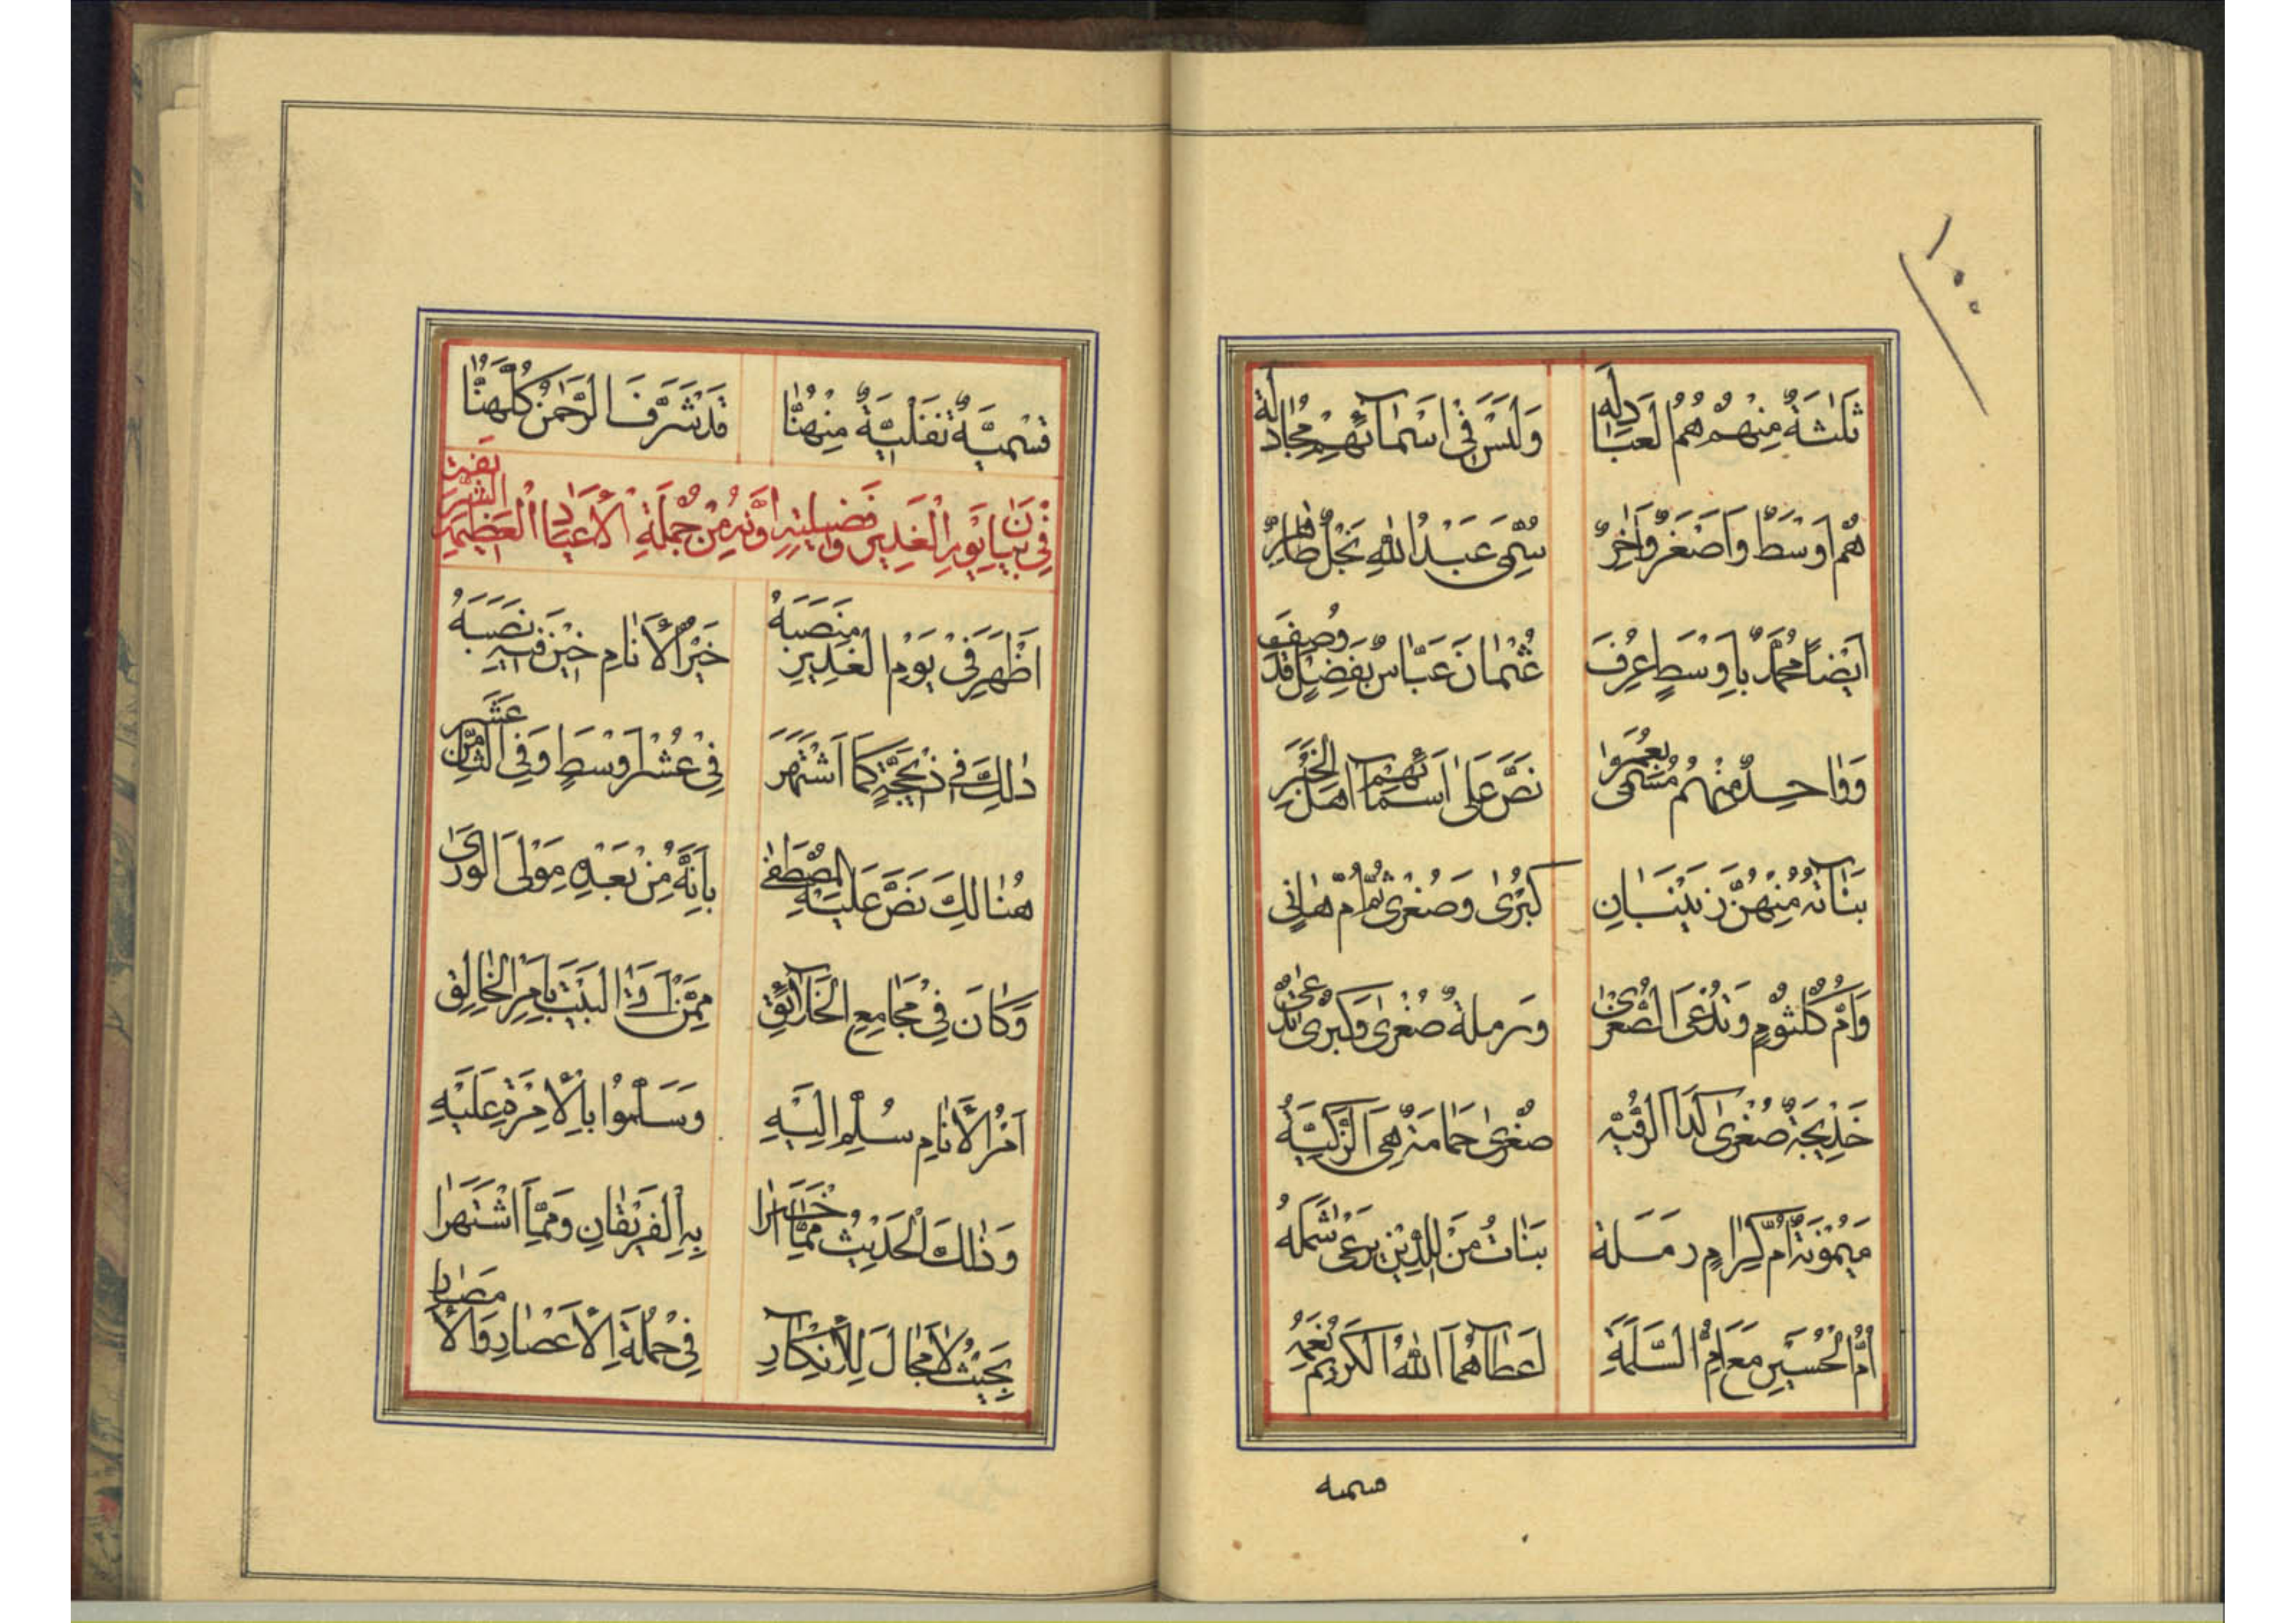 ١٠٠
ثَلٰثَةٌ مِنْهُمْ هُمُ الْعَبَادِلَه وَلَيْسَ فِي اَسْمٰائِهِمْ مُجٰادَلَة
هُمْ اَوْسَطٌ وَاَصْغَرٌ وَاٰخِرٌ سُمِّيَ عَبْدُ اللّٰهِ نَجْلٌ طٰاهِرٌ
اَيْضاً مُحَمَّدٌ بِاَوْسَطٍ عُرِفَ عُثْمٰانَ عَبّٰاسٌ بِفَضْلٍ قَدْ وُصِفَ
وَوٰاحِدٌ مِنْهُمْ مُسَمّىٰ بِعُمَرَ نَصَّ عَلىٰ اَسْمٰائِهِمْ اَهْلُ الْخَبَرِ
بَنٰاتُهُ مِنْهُنَّ زَيْنَبٰانِ كُبْرىٰ وَصُغْرىٰ ثُمَّ اُمُّ هٰانِي
وَاُمُّ كُلْثُومٍ وَتُدْعَى الصُّغْرىٰ وَرملةٌ صُغْرىٰ وَكُبْرىٰ تُدْعىٰ
خَدِيجَةٌ صُغْرىٰ كَذَا الرُّقَيَّه صُغْرىٰ جُمٰانَةٌ هِيَ الزَّكِيَّهُ
مَيْمُونَةٌ اُمُّ كِرٰامٍ رَمَلَة بَنٰاتُ مَنْ لِلدِّينِ يَرْعىٰ شَمْلَهُ
اُمُّ الْحُسَيْنِ مَعَ اُمِّ السَّلَمَةِ اَعْطٰاهُمَا اللّٰهُ الْكَرِيمُ نِعَمَهُ
فسميه
فَسْمِيَّةٌ نَفَلِيَّةٌ مِنْهُنّٰا قَدْ شَرَّفَ الرَّحْمٰنُ كُلَّهُنّٰا
فِي بَيٰانِ يَوْمِ الْغَدِيرِ وَفَضِيلَتِهِ وَاَنَّهُ مِنْ جُمْلَةِ الْاَعْيٰادِ الْعَظِيمَةِ الشَّرِيفَةِ
اَظْهَرَ فِي يَوْمِ الْغَدِيرِ مَنْصَبَهُ خَيْرُ الْاَنٰامِ حِينَ فِيهِ نَصَبَهُ
ذٰلِكَ فِي ذِيحَجَّةٍ كَمَا اشْتَهَرَ فِي عُشْرِ اَوْسَطٍ وَفِي الثّٰامِنِ عَشَر
هُنٰالِكَ نَصَّ عَلَيْهِ الْمُصْطَفىٰ بِاَنَّهُ مِنْ بَعْدِهِ مَوْلَى الْوَرىٰ
وَكٰانَ فِي مَجٰامِعِ الْخَلٰائِقِ مِمَّنْ اَتَى الْبَيْتَ بِاَمْرِ الْخٰالِقِ
اَمْرُ الْاَنٰامِ سُلِّمَ اِلَيْهِ وَسَلَّمُوا بِالْاِمْرَةِ عَلَيْهِ
وَذٰلِكَ الْحَدِيثُ مِمّٰا خَبَّرٰا بِهِ الْفَرِيقٰانِ وَمِمَّا اشْتَهَرٰا
بِحَيْثُ لٰا مَجٰالَ لِلْاِنْكٰارِ فِي جُمْلَةِ الْاَعْصٰارِ وَالْاَمْصٰارِ